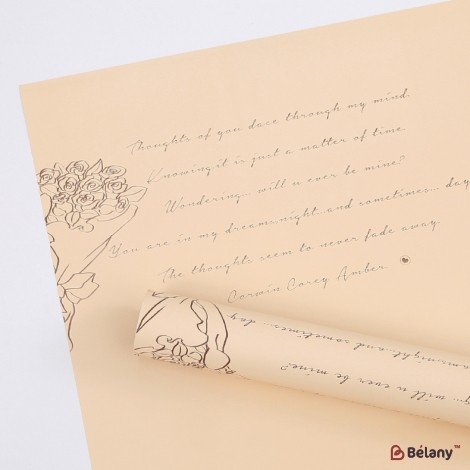 Thoughts of you dace through my mind.
Knowing it is just a matter of time
Wondering... will u ever be mine?
You are in my dreams, night... and sometimes... day
The thoughts seem to never fade away.
Corwin Corey Amber
night... and sometimes... day
will u ever be mine?
Bélany™